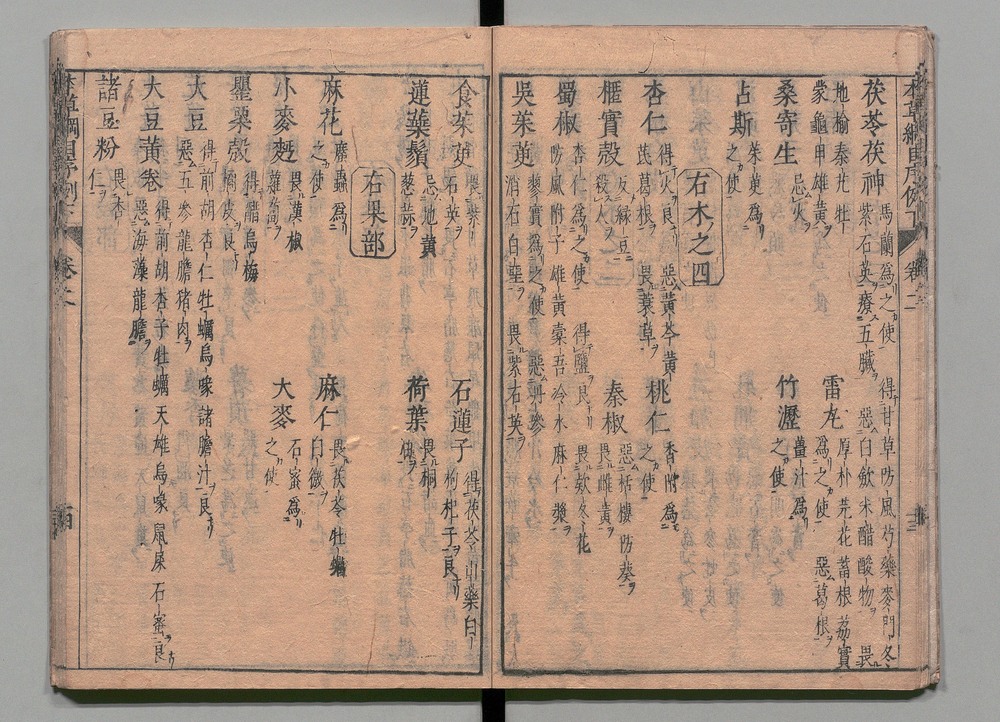 本草綱目序例下 卷二
茯苓茯神 馬蘭爲之使 得甘草防風芍藥麥門冬
紫石英療五臟 惡白斂米醋酸物 畏
地榆秦艽牡 雷丸 厚朴芫花蓄根荔實
蒙龜甲雄黃 爲之使 惡葛根
桑寄生 忌火 竹瀝 薑汁爲之使
占斯 茱萸爲之使
右木之四
杏仁 得火良 惡黃芩黃 桃仁 香附爲之使
芪葛根 畏蓑草
榧實殼 反綠豆殺人 秦椒 惡栝樓防葵畏雌黃
蜀椒 杏仁爲之使 得鹽良 畏欵冬花
防風附子雄黃橐吾冷水麻仁漿
吳茱萸 蓼實爲之使 惡丹參
消石白堊 畏紫石英
食茱萸 畏紫石英 石蓮子 得茯苓山藥白
枸杞子良
蓮蘂鬚 忌地黃葱蒜 荷葉 畏桐
右果部
麻花 䗪蟲爲之使 麻仁 畏茯苓牡蠣白薇
小麥麪 畏漢椒蘿蔔 大麥 石蜜爲之使
罌粟殼 得醋烏梅橘皮良
大豆 得前胡杏仁牡蠣烏喙諸膽汁良
惡五參龍膽豬肉
大豆黃卷 得前胡杏子牡蠣天雄烏喙鼠屎石蜜良
惡海藻龍膽
諸豆粉 畏杏仁
本草綱目序例下 卷二